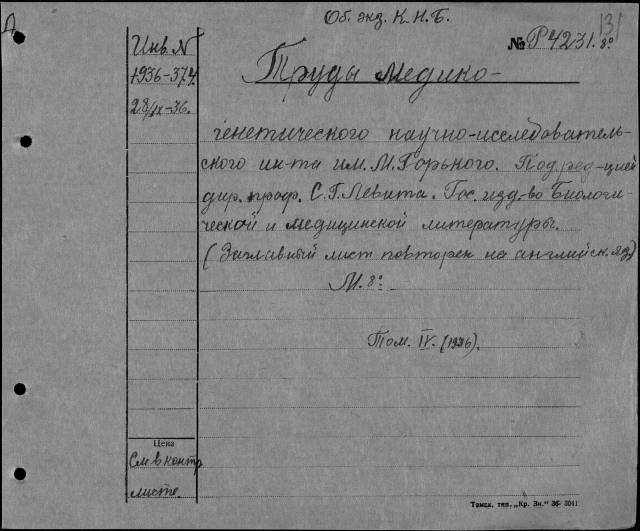 Об. энд. К.Н.Б.
131
№ Р4231.8º
Инв. N
1936-374.
28/IX-36.
Труды медико-
генетического научно-исследователь-
ского ин-та им. М. Горького. Под ред-цией
дир. проф. С. Г. Левита. Гос. изд-во Биологи-
ческой и медицинской литературы.
(Заглавный лист повторен на английск. яз)
М. 8º
Том. IV. (1936).
Цена
См в контр
листе.
Томск, тип. „Кр. Зн." 36 3041